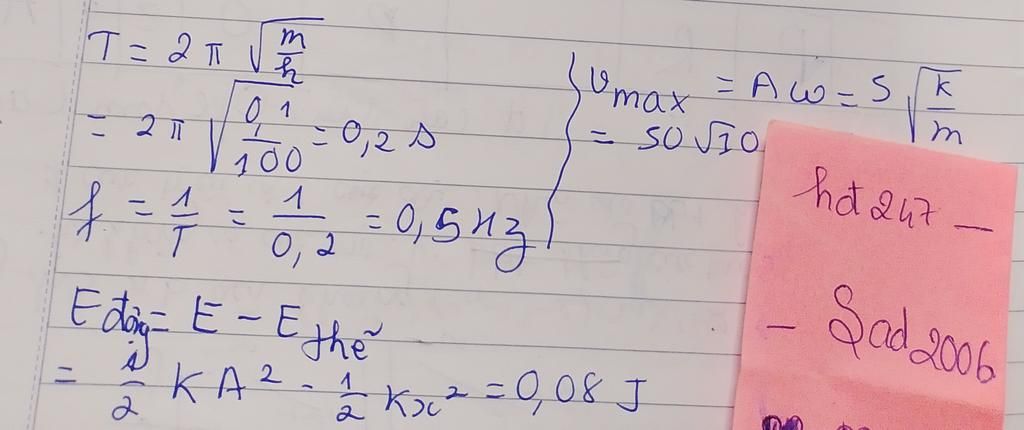 T = 2π √(m/k)
= 2π √(0,1/100) = 0,2 s
f = 1/T = 1/0,2 = 0,5 Hz
vmax = Aω = 5 √(k/m)
= 50√10
Eđộng = E - Ethế
= 1/2 KA² - 1/2 Kx² = 0,08 J
hdt 247 —
- Sad 2006